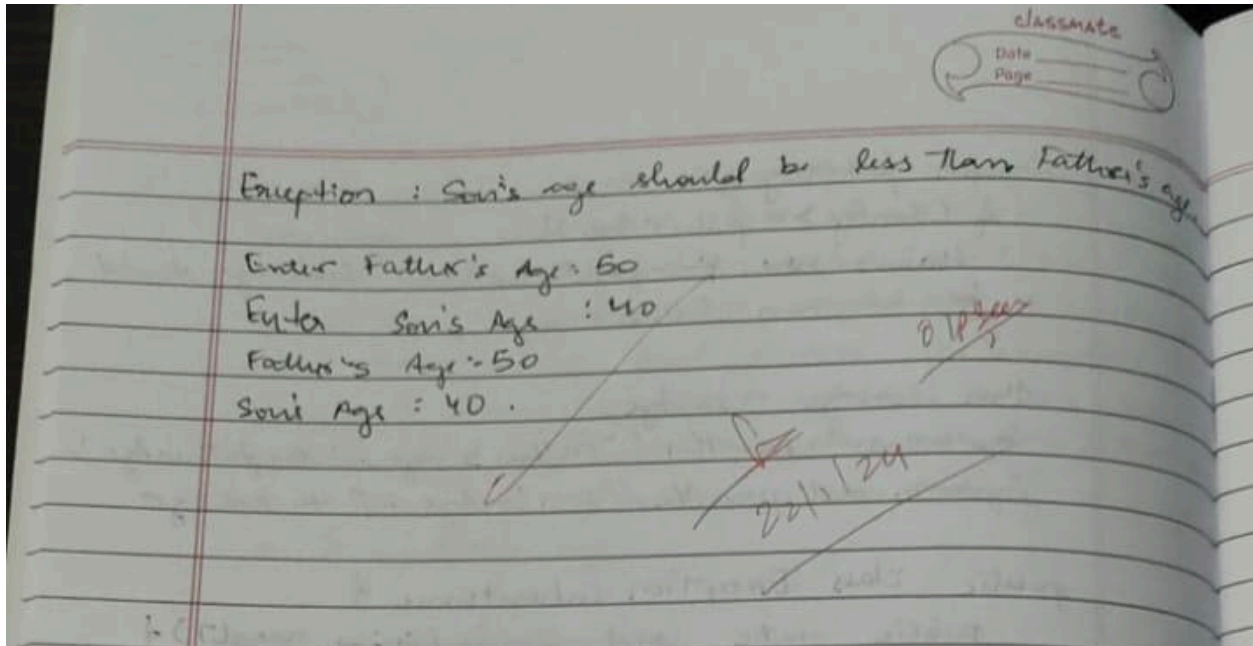 classmate
Date
Page
Exception : Son's age should be less than Father's age.
Enter Father's Age: 50
Enter Son's Age : 40
Father's Age :- 50
Son's Age : 40.
22/1/24